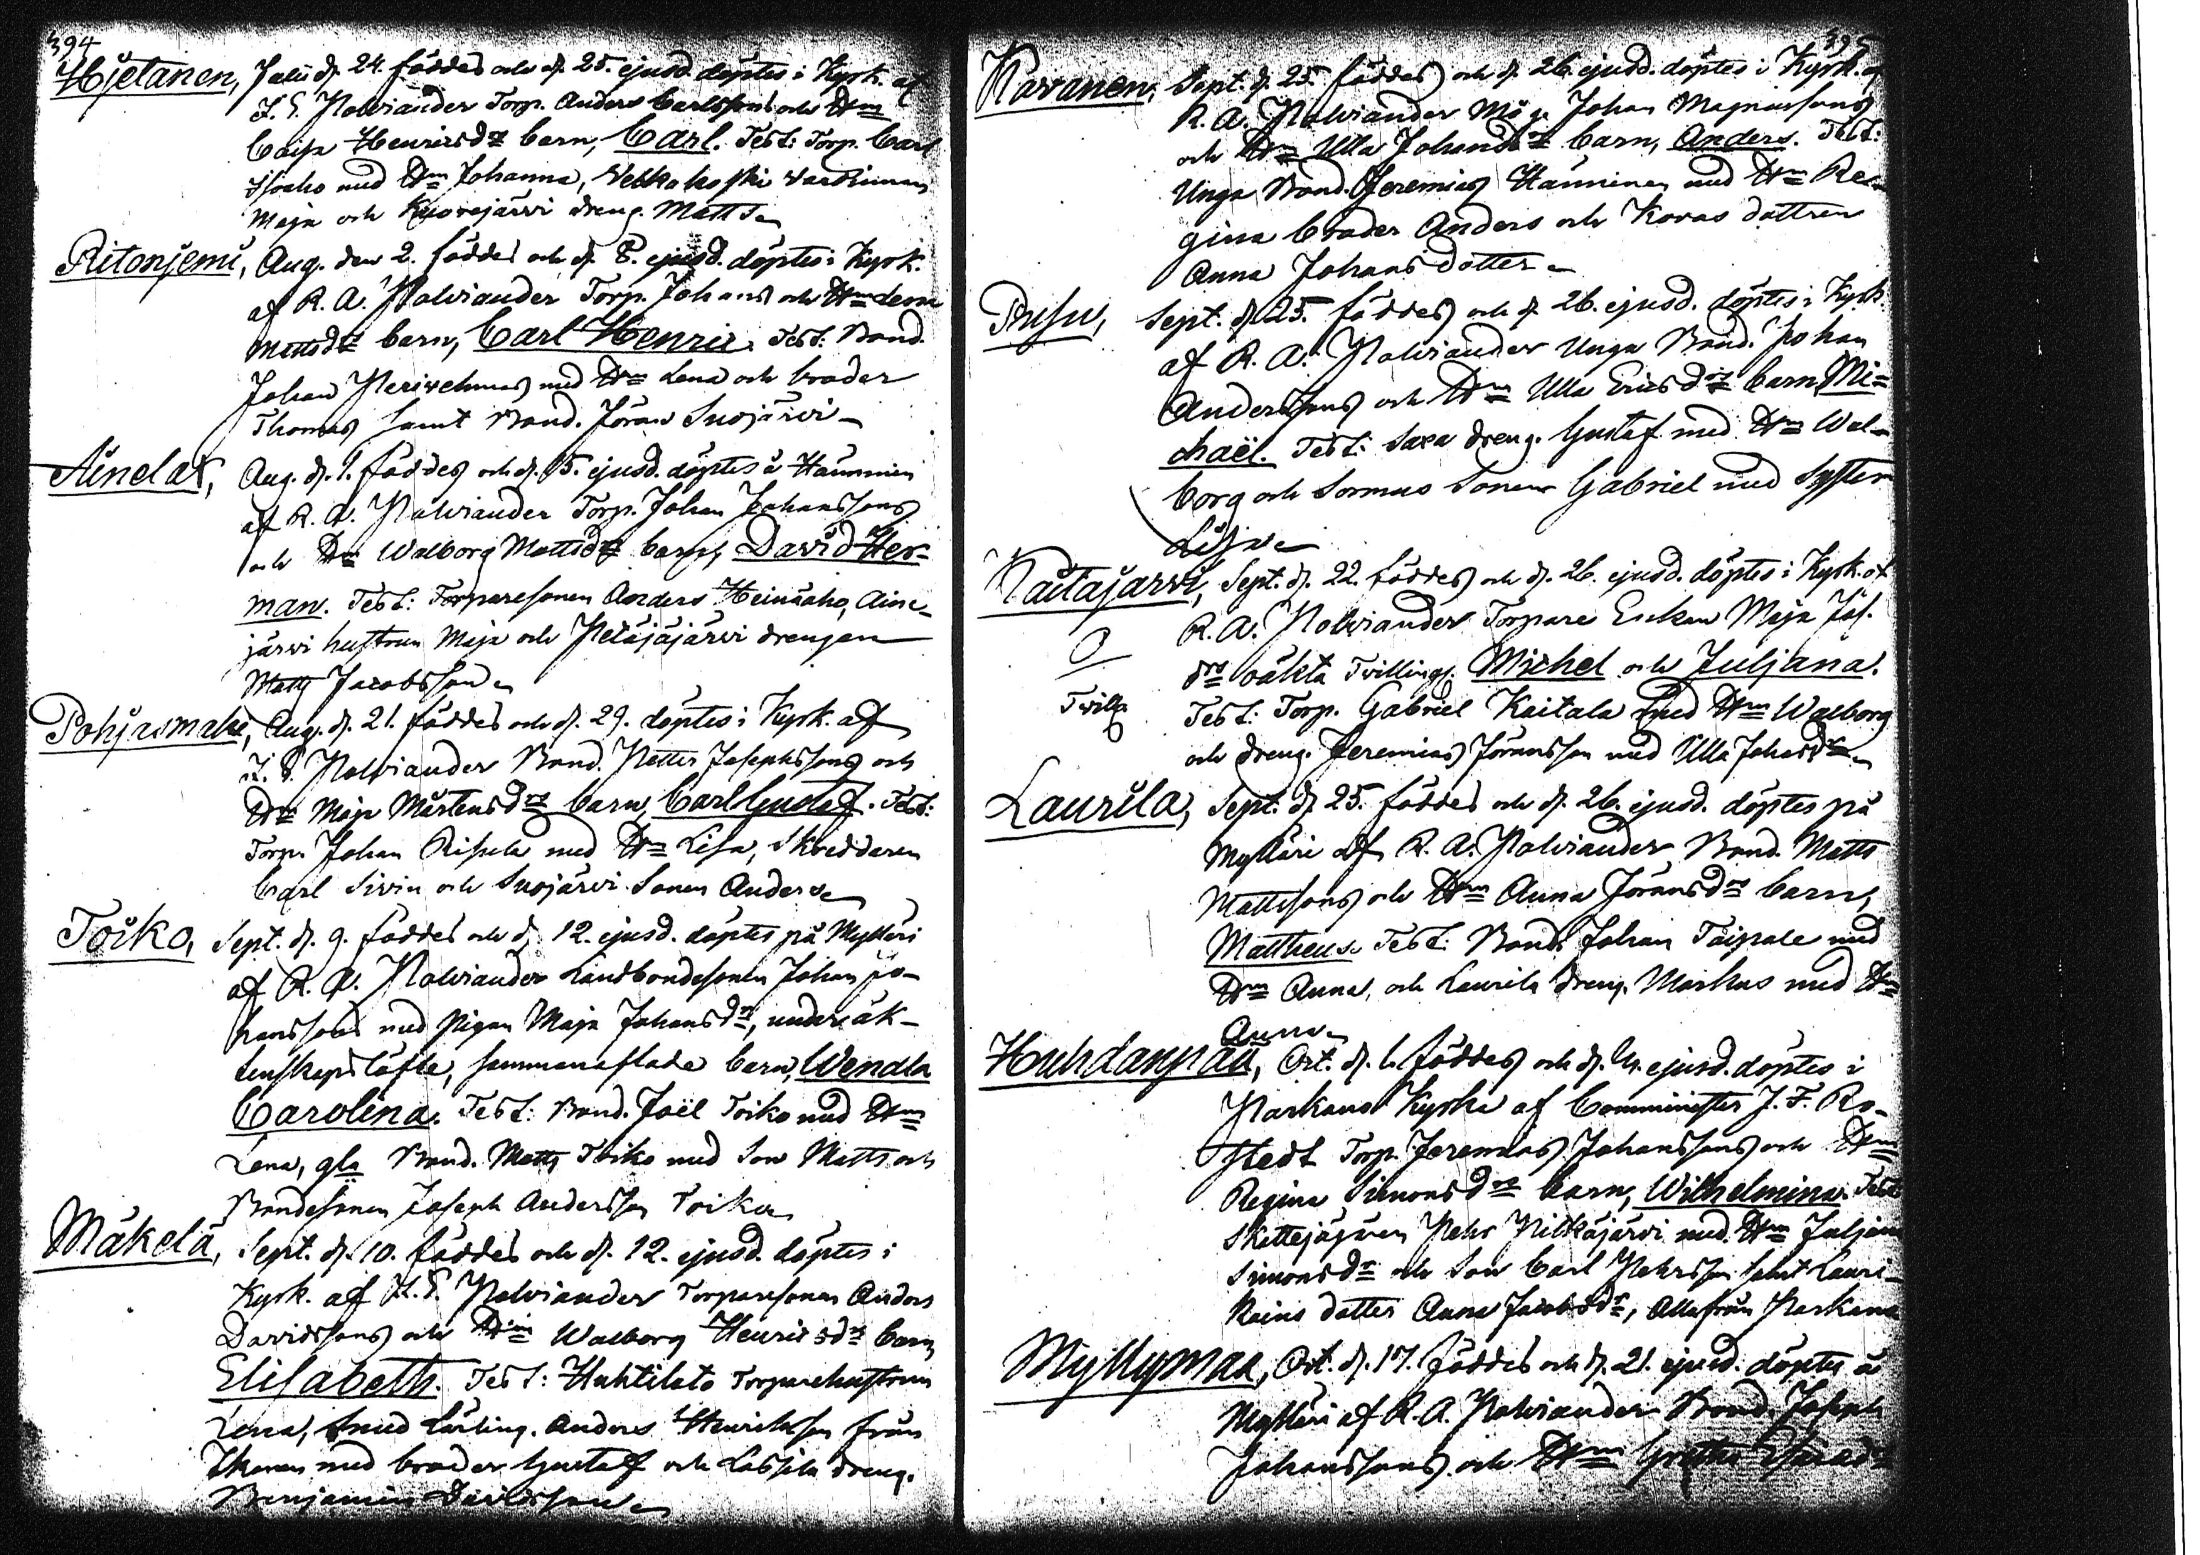 394
Hjetanen, Julii d. 24. föddes och d. 25. ejusd. döptes i Kyrk. af
J. E. Palviander Torp. Anders Carlssons och Hm
Caisa Henricsdrs barn, Carl. Test: Torp. Carl
med Hm Johanna,
Maja och Kuorejärvi dreng. Matts.
Ritonjemi, Aug. den 2. föddes och d. 8. ejusd. döptes i Kyrk.
af R. A. Palviander Torp. Johans och Hm Lena
Mattsdrs barn, Carl Henric. Test: Bond.
Johan med Hm Lena och broder
Thomas samt Bond. Jöran Suojärvi
Ainelax, Aug. d. 1. föddes och d. 15. ejusd. döptes å
af R. A. Palviander Torp. Johan Johanssons
och Hm Walborg Mattsdrs barn, David Her-
man. Test: Torparesonen Anders Heinäaho, Aine-
järvi hustrun Maja och Petäjäjärvi drengen
Matts Jacobsson
Pohjasmäki, Aug. d. 21. föddes och d. 29. döptes i Kyrk. af
J. E. Palviander Bond. Petter Josephssons och
Hm Maja Mårtensdrs barn, Carl Gustaf. Test:
Torp. Johan med Hm Lisa, Skreddaren
Carl Sivin och Suojärvi Sonen Anders
Toiko, Sept. d. 9. föddes och d. 12. ejusd. döptes på Mylläri
af R. A. Palviander Landbondesonen Johan Jo-
hanssons med pigan Maja Johansdr, under äk-
tenskapslöfte, sammanaflade barn, Wendla
Carolina. Test: Bond. Joël Toiko med Hm
Lena, gla Bond. Matts Toiko med Son Matts och
Bondesonen Joseph Andersson Toiko
Mäkelä, Sept. d. 10. föddes och d. 12. ejusd. döptes i
Kyrk. af J. E. Palviander Torparesonen Anders
Davidssons och Hm Walborg Henricsdrs barn
Elisabeth. Test: Huhtilato Torparehustrun
Lena, Smed Lärling. Anders Henriksson från
Ikaren med broder Gustaf och Lassila dreng.
Benjamin Davidsson
395
Karanen, Sept. d. 25. föddes och d. 26. ejusd. döptes i Kyrk. af
R. A. Palviander Måg. Johan Magnussons
och Hm Ulla Johansdrs barn, Anders. Test:
Unga Bond. Jeremias Hänninen med Hm Re-
gina broder Anders och Koras dottren
Anna Johansdotter
Pusu, Sept. d. 25. föddes och d. 26. ejusd. döptes i Kyrk.
af R. A. Palviander Unga Bond. Johan
Anderssons och Hm Ulla Ericsdrs barn Mi-
chaël. Test: Saxa dreng. Gustaf med Hm Wal-
borg och Sormus Sonen Gabriel med Syster
Lisa
Kaitajärvi, Sept. d. 22. föddes och d. 26. ejusd. döptes i Kyrk. af
R. A. Palviander Torpare Enkan Maja Jos.
drs oäkta Tvilling. Michel och Juljana.
Tvill.
Test: Torp. Gabriel Kaitala med Hm Walborg
och dreng. Jeremias Jöransson med Ulla Johansdr
Laurila, Sept. d. 25. föddes och d. 26. ejusd. döptes på
Mylläri af R. A. Palviander Bond. Matts
Mattssons och Hm Anna Jöransdrs barn,
Mattheus. Test: Bond. Johan Taipale med
Hm Anna, och Laurila dreng. Markus med Hm
Anna
Huhdanpää, Oct. d. 1. föddes och d. ejusd. döptes i
Parkano Kyrka af Comminister J. F. Ro-
stedt Torp. Jeremias Johanssons och Hm
Regina Simonsdrs barn, Wilhelmina. Test
Skottejägaren Pehr Pitkäjärvi med Hm Juljana
Simonsdr och Son Carl Pehrsson samt Lauri-
kains dotter Anna Jacobsdr, Alla från Parkano
Myllymaa, Oct. d. 17. föddes och d. 21. ejusd. döptes å
Mylläri af R. A. Palviander Bond. Joseph
Johanssons och Hm Gretha